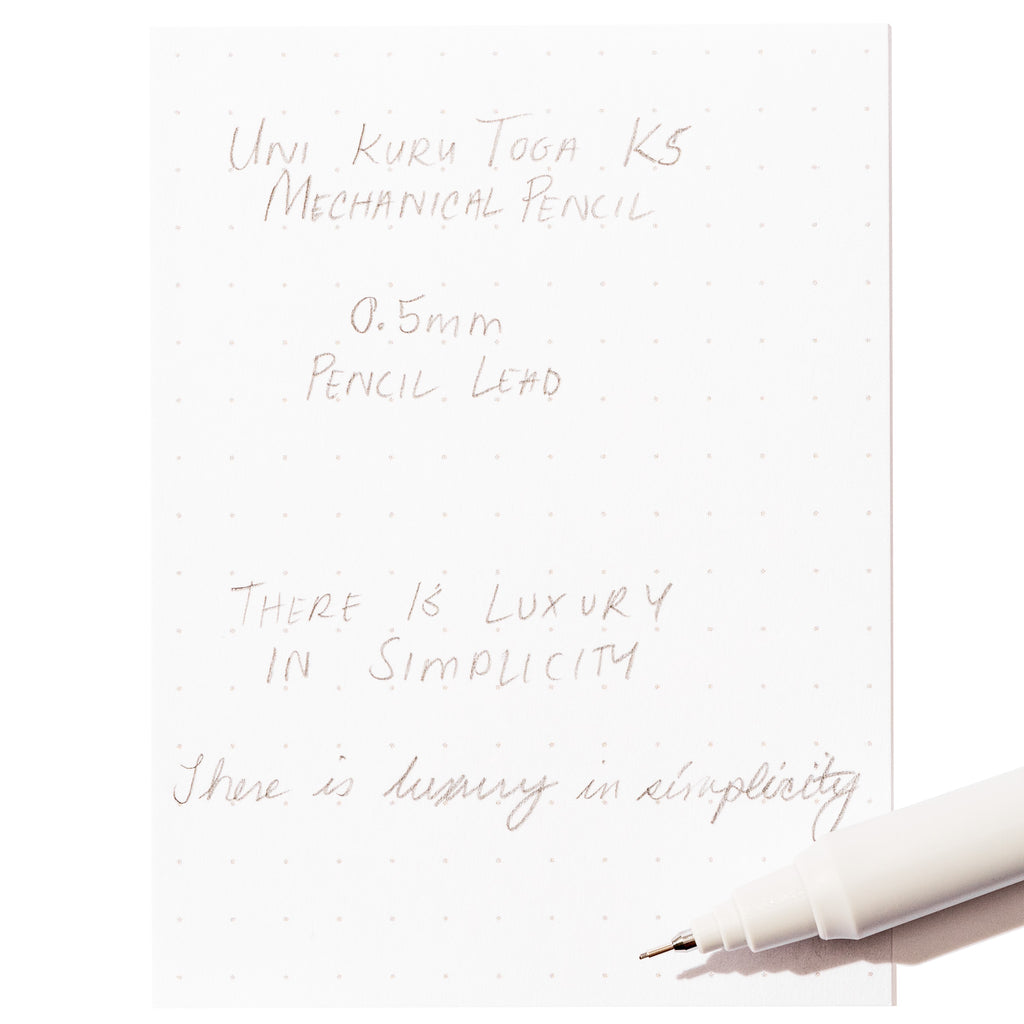 UNI KURU TOGA KS
MECHANICAL PENCIL
0.5mm
PENCIL LEAD
THERE IS LUXURY
IN SIMPLICITY
There is luxury in simplicity